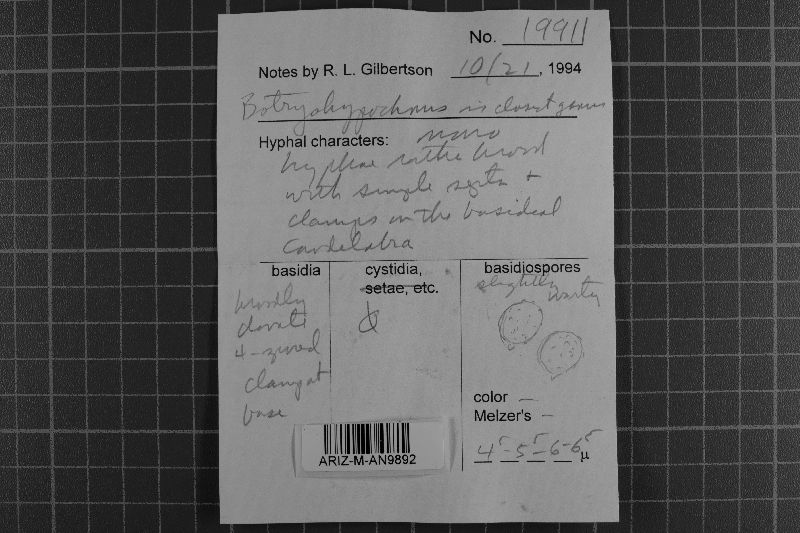 No. 19911
Notes by R. L. Gilbertson 10/21, 1994
Botryohypochnus is closest genus
Hyphal characters: mono
hyphae rather broad
with simple septa +
clamps on the basidial
candelabra
basidia
broadly
clavate
4-
clamp at
base
cystidia,
setae, etc.
basidiospores
slightly warty
color —
Melzer's —
4⁵-5⁵-6-6⁵ µ
ARIZ-M-AN9892